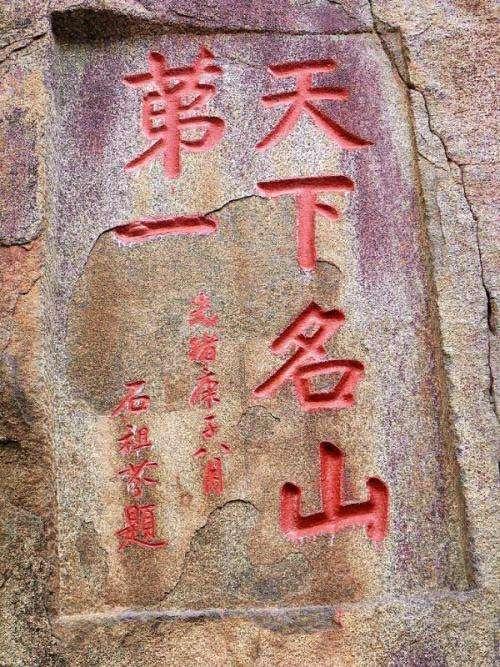 天下名山
第一
光緒庚子八月
石祖芬題